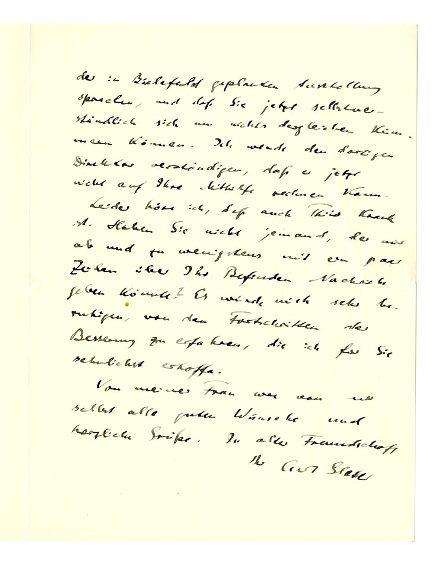 der in Bielefeld geplanten Ausstellung
sprechen, und daß Sie jetzt selbstver-
ständlich sich um nichts dergleichen küm-
mern können. Ich werde den dortigen
Direktor verständigen, daß er jetzt
nicht auf Ihre Mithilfe rechnen kann.
Leider höre ich, daß auch Thiis krank
ist. Haben Sie nicht jemand, der mir
ab und zu wenigstens mit ein paar
Zeilen über Ihr Befinden Nachricht
geben könnte? Es würde mich sehr be-
ruhigen, von den Fortschritten der
Besserung zu erfahren, die ich für Sie
sehnlichst erhoffe.
Von meiner Frau wie von mir
selbst alle guten Wünsche und
herzliche Grüße. In alter Freundschaft
Ihr Curt Glaser